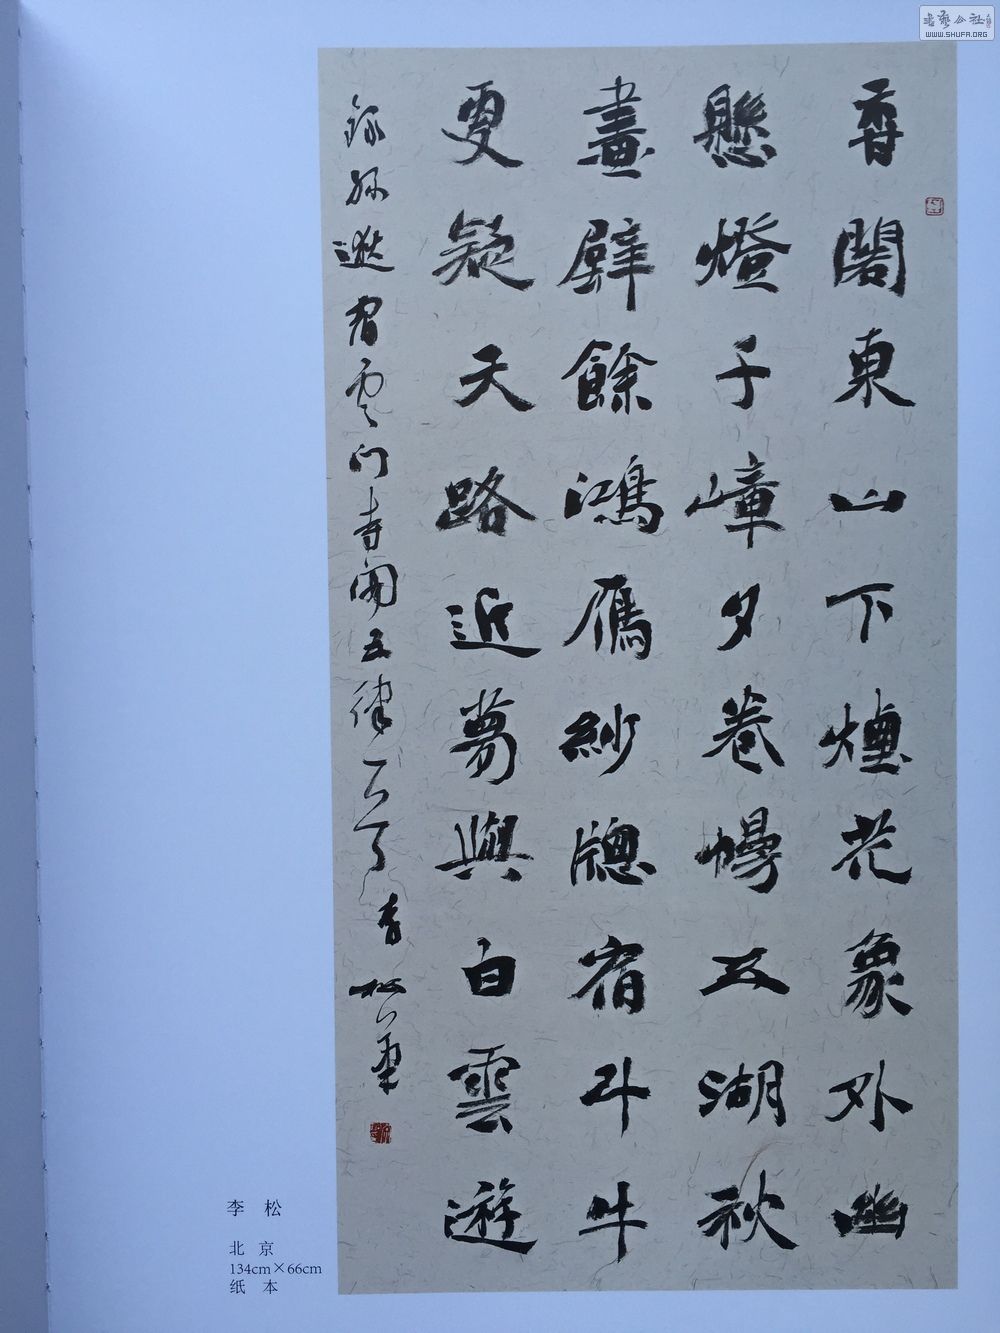 香閣東山下煙花象外幽
懸燈千嶂夕卷幔五湖秋
畫壁餘鴻雁紗牕宿斗牛
更疑天路近夢與白雲遊
錄孫逖宿雲门寺閣五律一首 李松筆
李 松
北 京
134cm×66cm
纸 本
WWW.SHUFA.ORG